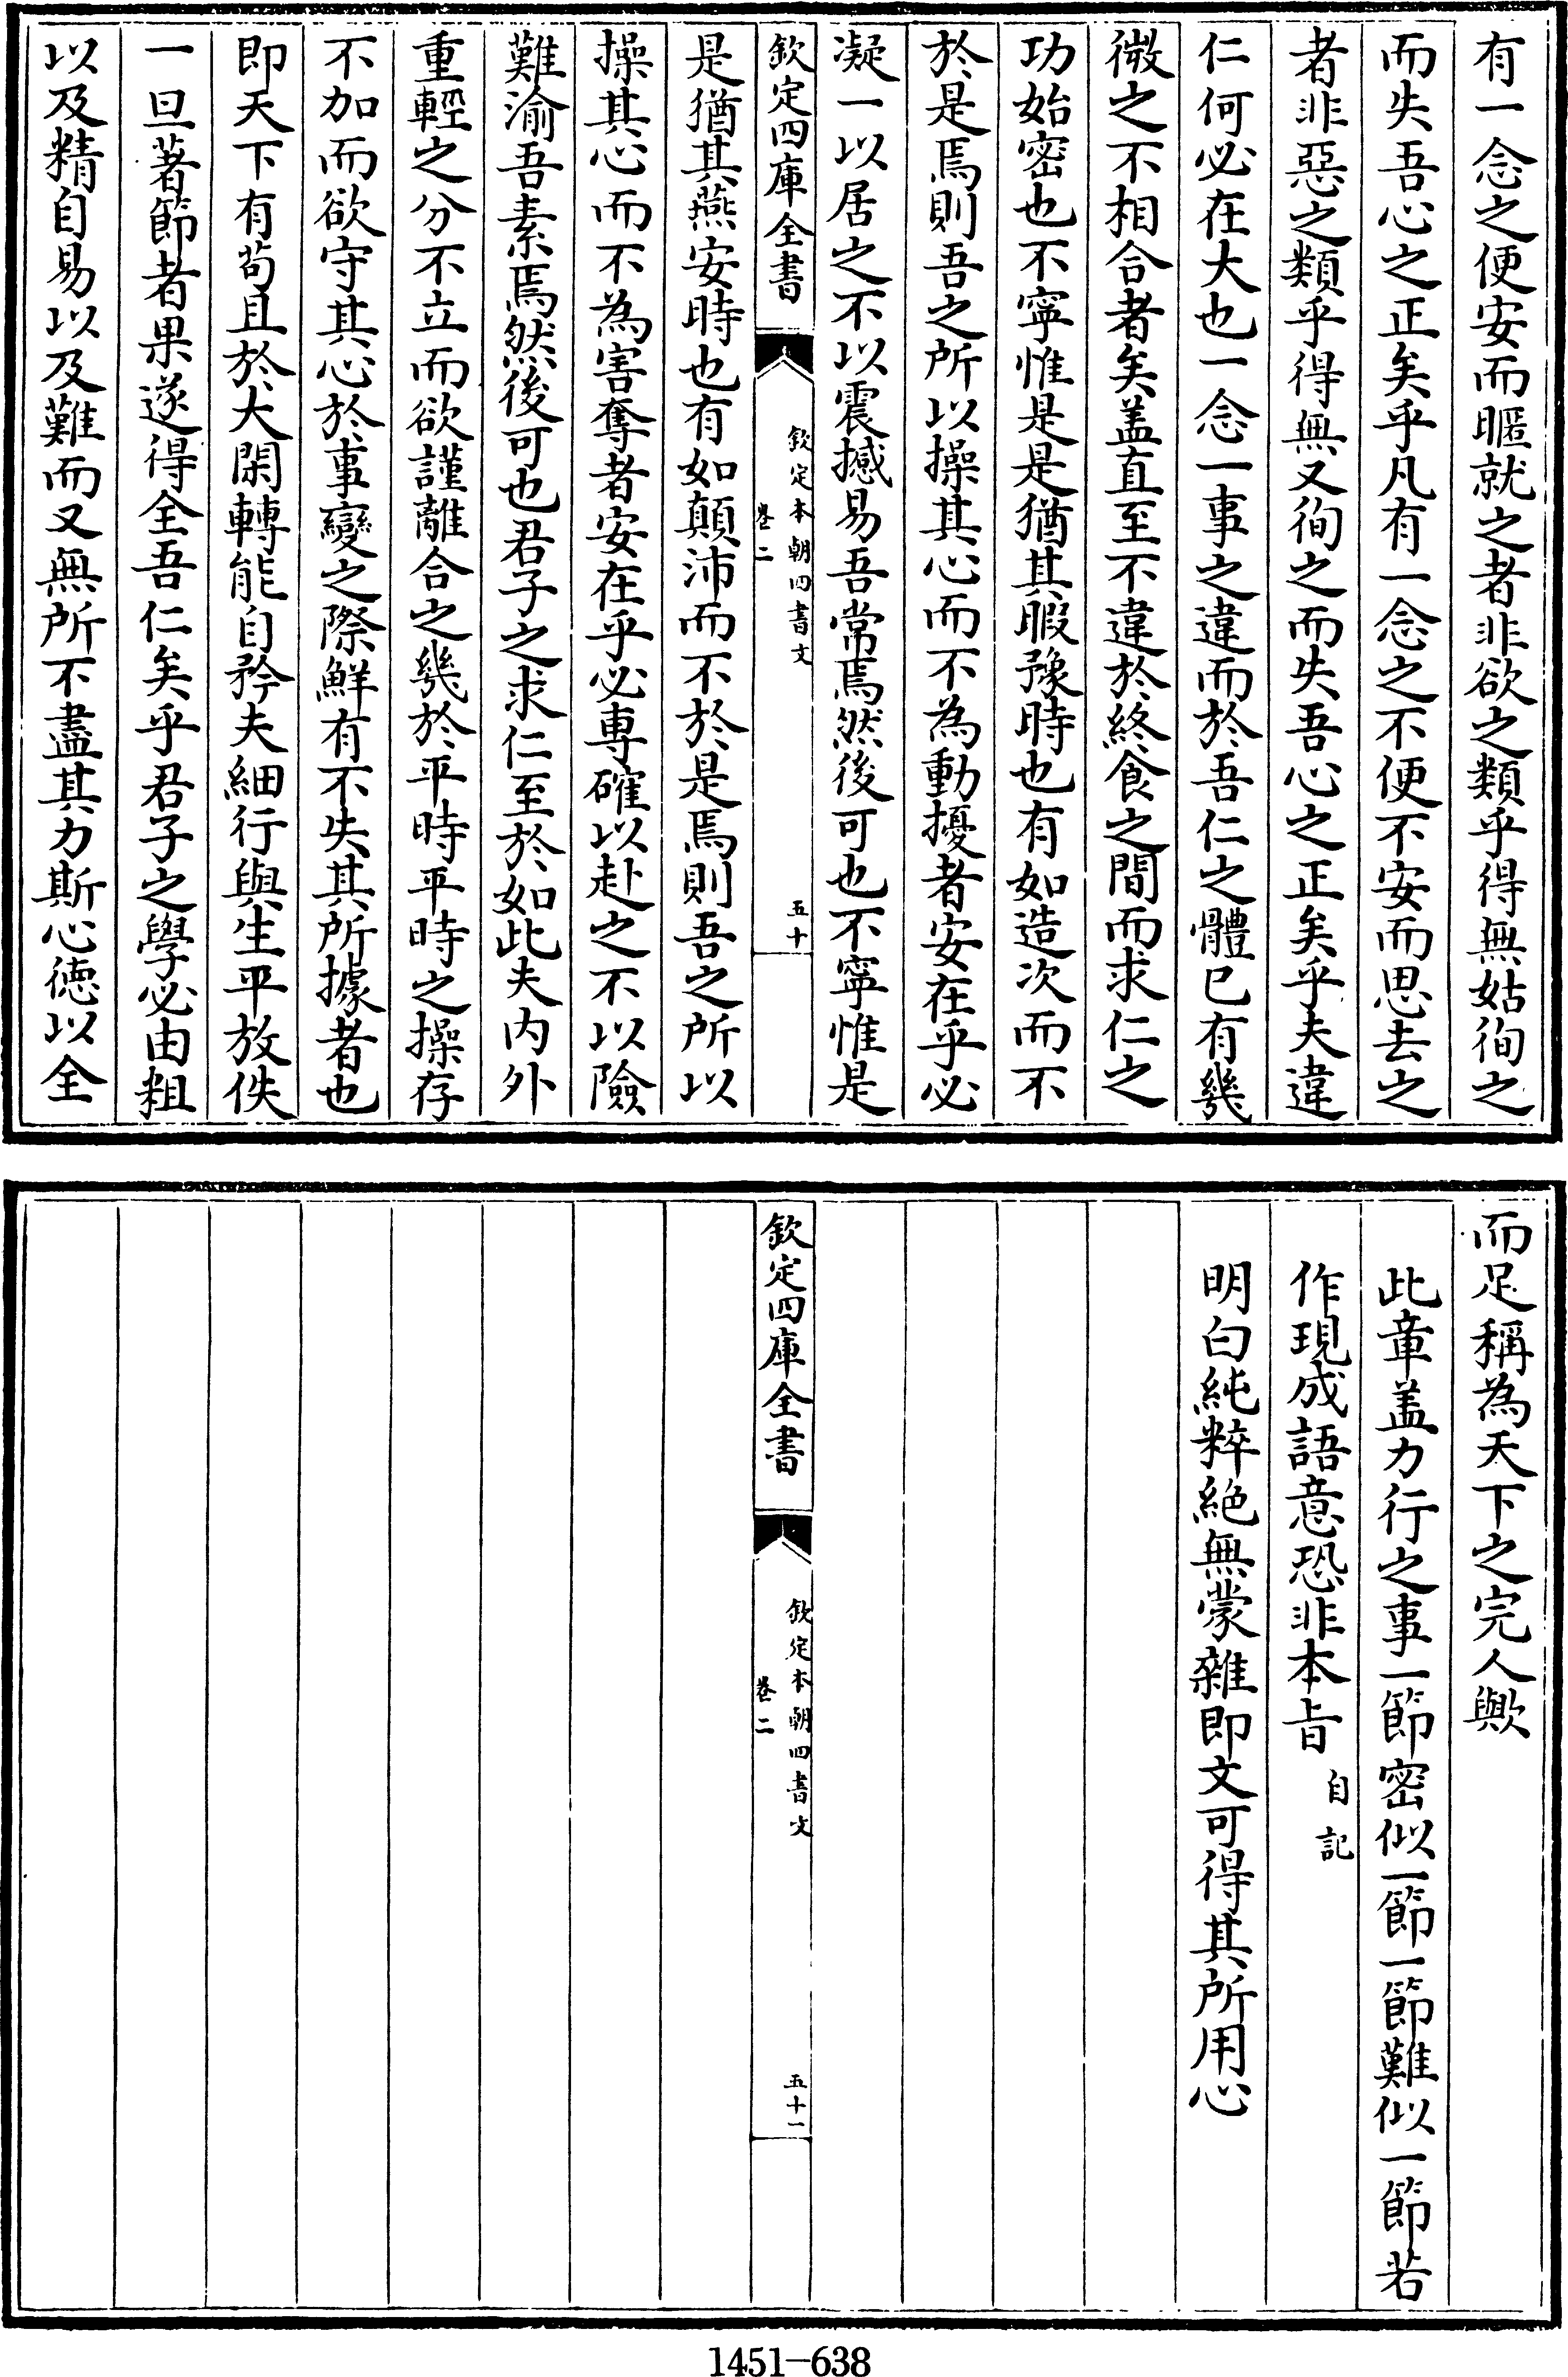 有一念之便安而暱就之者非欲之類乎得無姑徇之
而失吾心之正矣乎凡有一念之不便不安而思去之
者非惡之類乎得無又徇之而失吾心之正矣乎夫違
仁何必在大也一念一事之違而於吾仁之體已有幾
微之不相合者矣盖直至不違於終食之間而求仁之
功始密也不寧惟是是猶其暇豫時也有如造次而不
於是焉則吾之所以操其心而不為動擾者安在乎必
凝一以居之不以震撼易吾常焉然後可也不寧惟是
欽定四庫全書
欽定本朝四書文
卷二
五十
是猶其燕安時也有如顛沛而不於是焉則吾之所以
操其心而不為害奪者安在乎必專確以赴之不以險
難渝吾素焉然後可也君子之求仁至於如此夫內外
重輕之分不立而欲謹離合之幾於平時平時之操存
不加而欲守其心於事變之際鮮有不失其所據者也
即天下有苟且於大閑轉能自矜夫細行與生平放佚
一旦著節者果遂得全吾仁矣乎君子之學必由粗
以及精自易以及難而又無所不盡其力斯心德以全
而足稱為天下之完人歟
此章盖力行之事一節密似一節一節難似一節若
作現成語意恐非本旨 自記
明白純粹絕無蒙雜即文可得其所用心
欽定四庫全書
欽定本朝四書文
卷二
五十一
1451-638